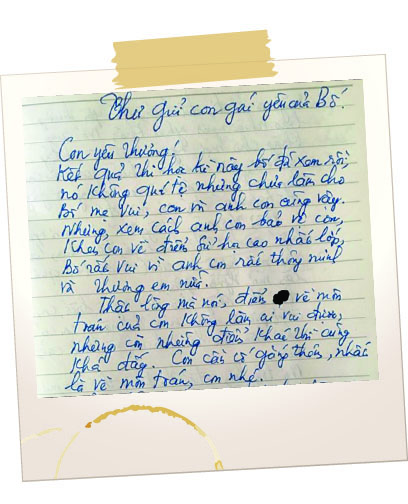 Thư gửi con gái yêu của Bố.
Con yêu thương!
Kết quả thi học kì này bố đã xem rồi,
nó không quá tệ nhưng chưa làm cho
Bố mẹ vui, con và anh con cũng vậy.
Nhưng, xem cách anh con bảo vệ con,
khen con về điểm Sử học cao nhất lớp,
Bố rất vui vì anh con rất thông minh
và thương em nữa.
Thật lòng mà nói, điểm về môn
toán của con không làm ai vui được,
nhưng còn những điểm khác thì cũng
khá đấy. Con cần cố gắng thêm, nhất
là về môn toán, con nhé.